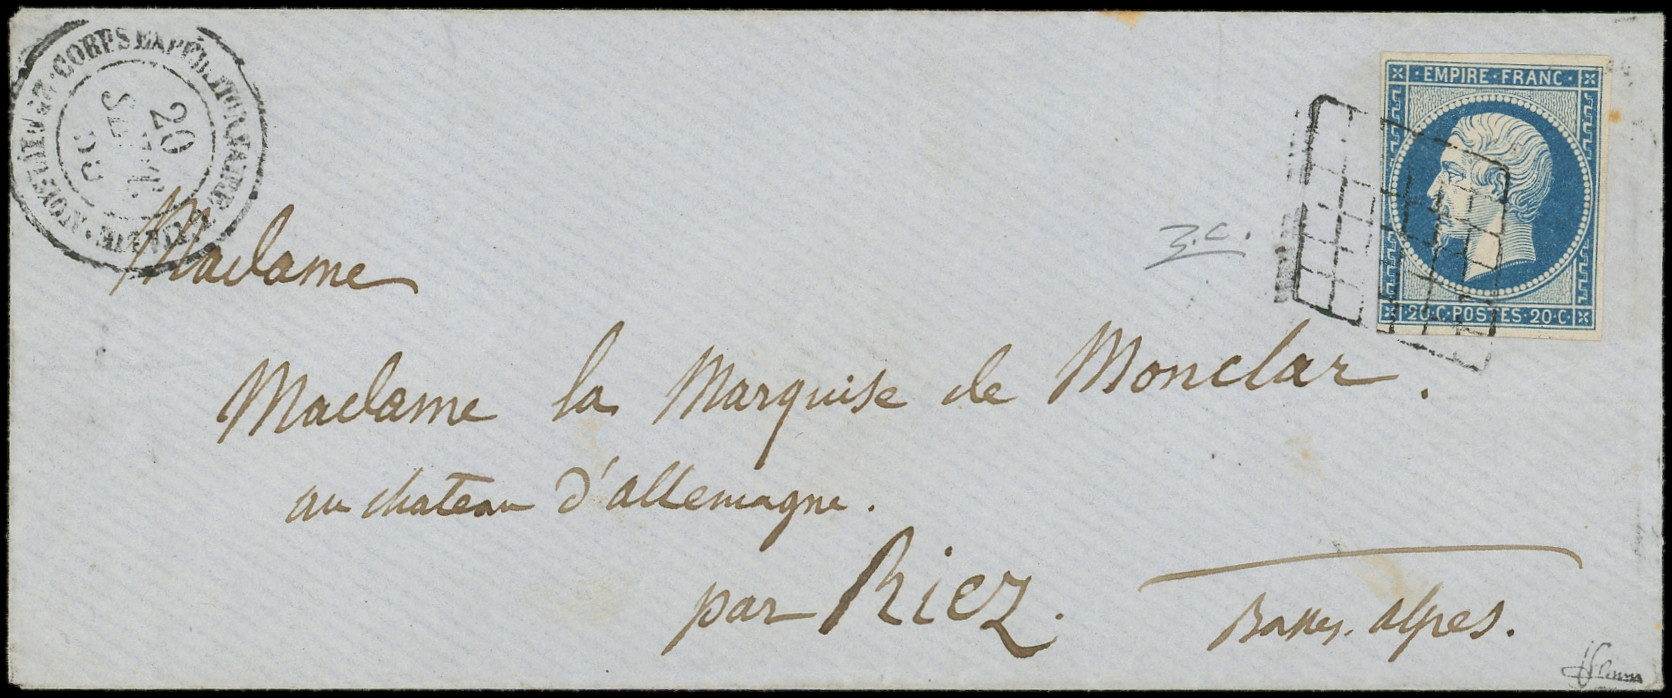 CORPS EXPÉDITIONNAIRE
20
SEPT.
EMPIRE · FRANC ·
· 20 · C · POSTES · 20 · C ·
Madame
Madame la Marquise de Monclar.
au chateau d'allemagne.
par Riez.
Basses. alpes.